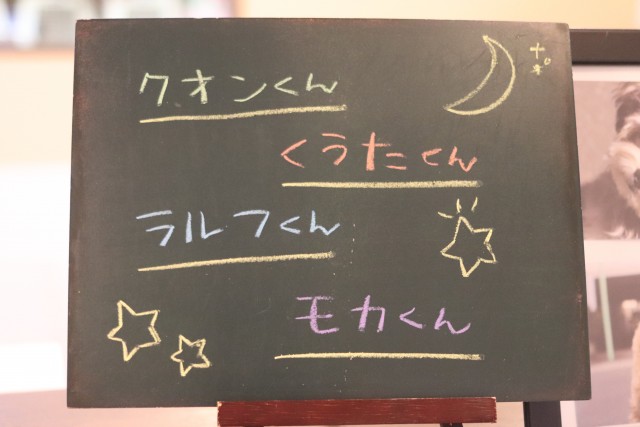 クオンくん
くうたくん
ラルフくん
モカくん